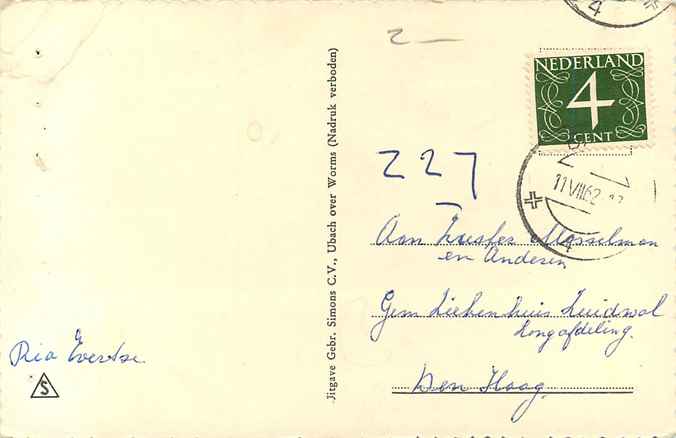 NEDERLAND
4
CENT
11 VII 62
4
4
2
227
Aan Zusters Mosselman
en Anderen
Gem Ziekenhuis Zuidwal
Longafdeling.
Den Haag
Jitgave Gebr. Simons C.V., Ubach over Worms (Nadruk verboden)
Ria Evertse
S